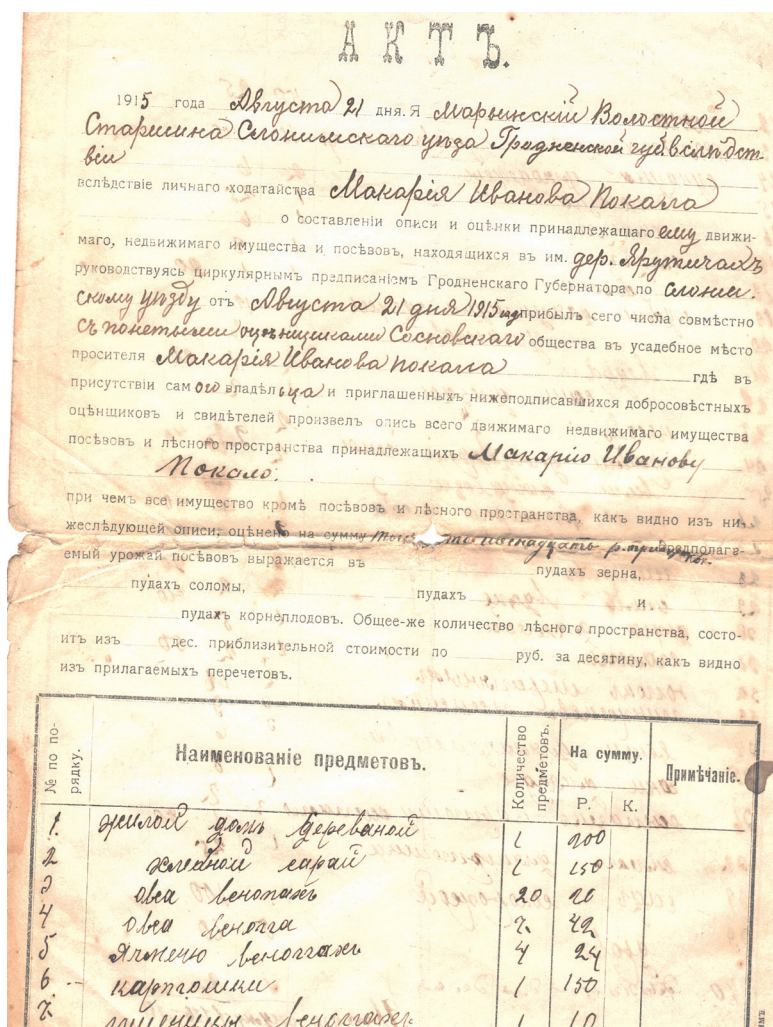 АКТЪ.
1915 года Августа 21 дня. Я Марьинскій Волостной
Старшина Слонимскаго уѣзда Гродненской губ вслѣдст
віи
вслѣдствіе личнаго ходатайства Макарія Иванова Покала
о составленіи описи и оцѣнки принадлежащаго ему движи-
маго, недвижимаго имущества и посѣвовъ, находящихся въ им. дер. Яруничахъ
руководствуясь циркулярнымъ предписаніемъ Гродненскаго Губернатора по Слоним.
скому уѣзду отъ Августа 21 дня 1915 прибылъ сего числа совмѣстно
съ понетыми оцѣнщиками Сосновскаго общества въ усадебное мѣсто
просителя Макарія Иванова Покала гдѣ въ
присутствіи самого владѣльца и приглашенныхъ нижеподписавшихся добросовѣстныхъ
оцѣнщиковъ и свидѣтелей произвелъ опись всего движимаго недвижимаго имущества
посѣвовъ и лѣсного пространства принадлежащихъ Макарію Иванову
Покало.
при чемъ все имущество кромѣ посѣвовъ и лѣсного пространства, какъ видно изъ ни-
жеслѣдующей описи, оцѣнено на сумму Предполага-
емый урожай посѣвовъ выражается въ пудахъ зерна,
пудахъ соломы, пудахъ и
пудахъ корнеплодовъ. Общее-же количество лѣсного пространства, состо-
итъ изъ дес. приблизительной стоимости по руб. за десятину, какъ видно
изъ прилагаемыхъ перечетовъ.
№ по по-
рядку. Наименованіе предметовъ. Количество
предметовъ. На сумму. Примѣчаніе.
Р. К.
1. жилой домъ деревяной 1 200
2 хлебной сарай 1 150
3 овса 20 20
4 овса 7 42
5 Ячменю 4 24
6 картошки 1 150
7 пшеницы 1 10